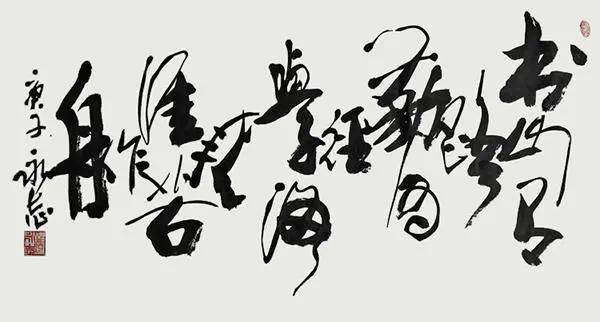 书山有
路
勤为
径
學海
無
涯苦
作
舟
庚子永志